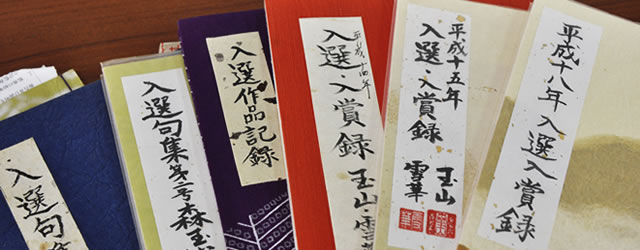 入選句
入選句集第二号森玉
入選作品記録
平成十四年
入選・入賞録 玉山・雪華
平成十五年
入選・入賞録 玉山
雪華
平成十八年入選入賞録